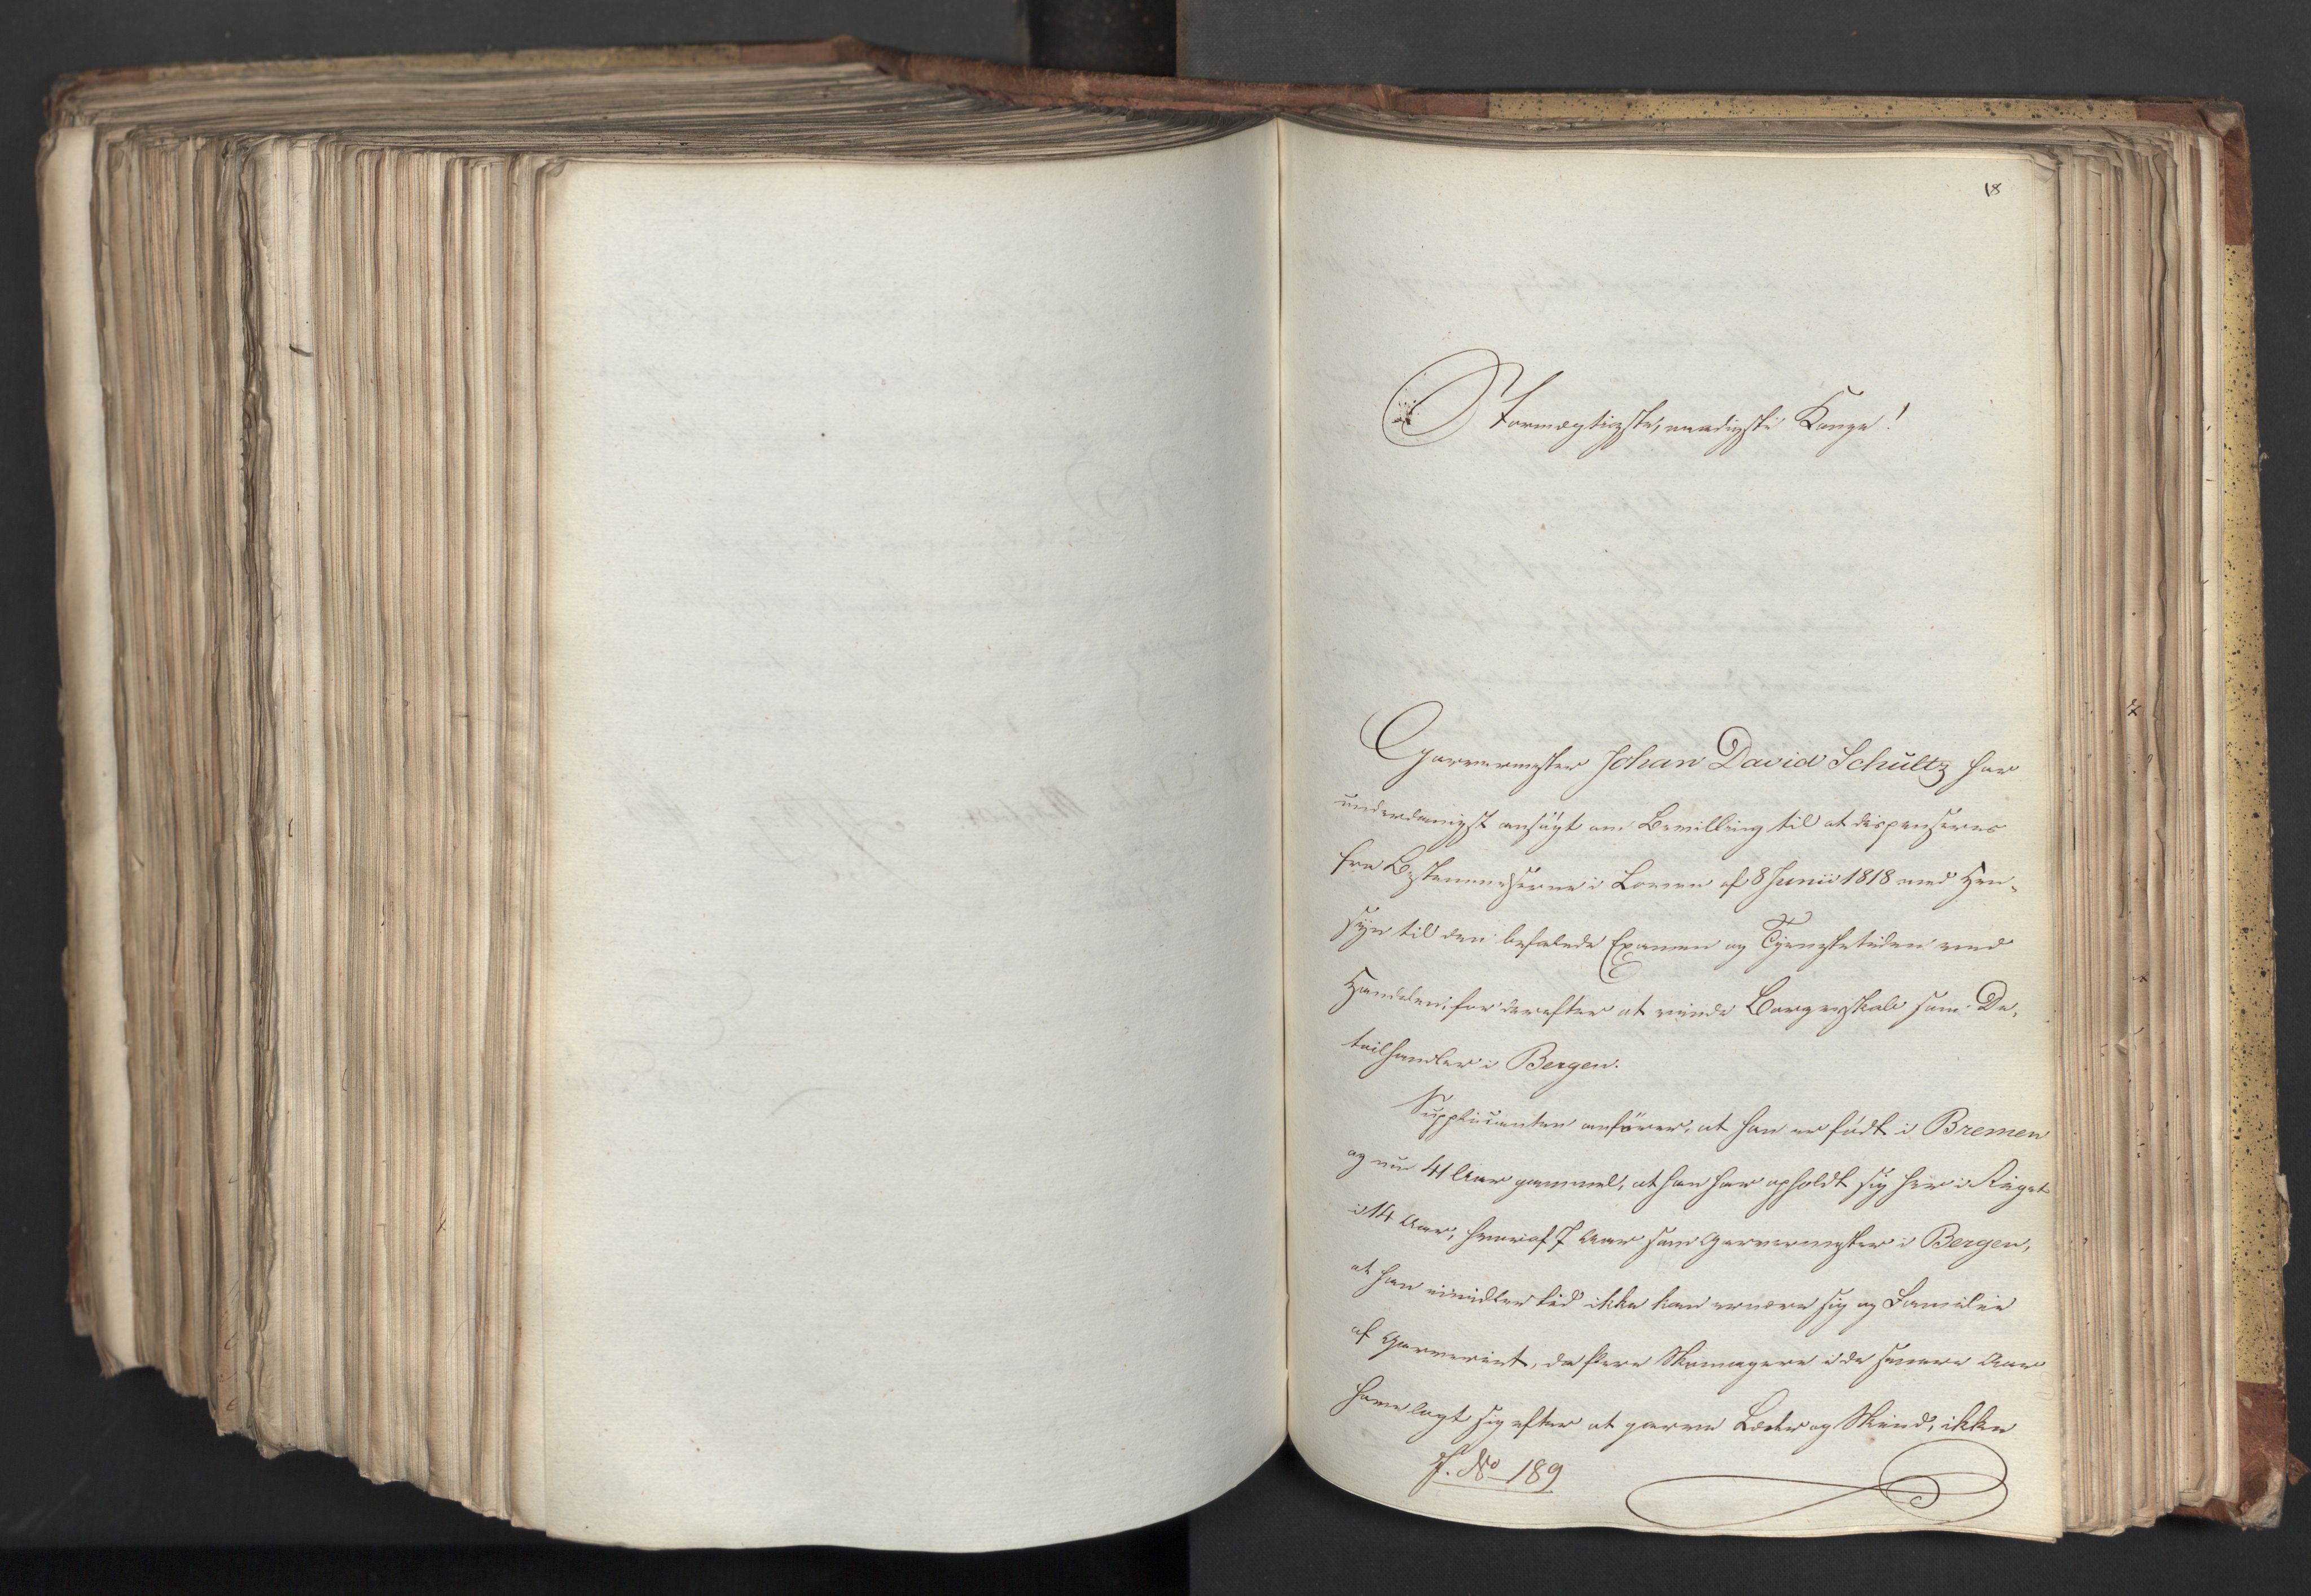 18
Stormægtigste, naadigste Konge!
Garvermester Johan David Schultz har
underdanigst ansøgt om Bevilling til at dispenseres
fra Bestemmelserne i Loven af 8 Junii 1818 med Hen-
syn til den befalede Examen og Tjenestetiden ved
Handelen, for derefter at vinde Borgerskab som De-
tailhandler i Bergen.
Supplicanten anfører, at han er født i Bremen
og nu 41 Aar gammel, at han har opholdt sig her i Riget
i 14 Aar, hvoraf 7 Aar som Garvermester i Bergen,
at han imidlertid ikke kan ernære sig og Familie
af Garveriet, da flere Skomagere i de senere Aar
have lagt sig efter at garve Læder og Skind, ikke
J. No 189